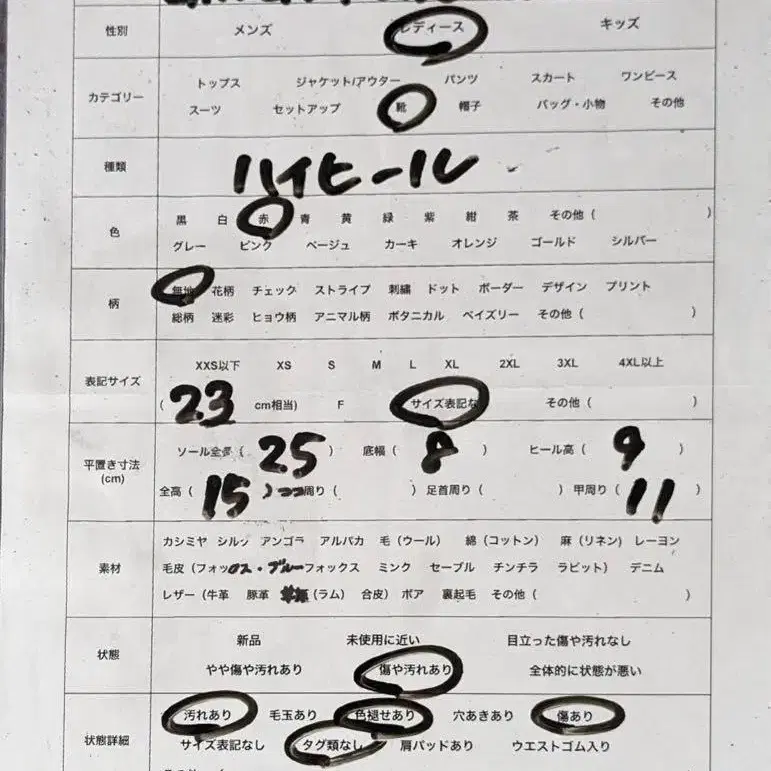 性別 メンズ レディース キッズ
カテゴリー トップス ジャケット/アウター パンツ スカート ワンピース
スーツ セットアップ 靴 帽子 バッグ・小物 その他
種類 ハイヒール
色 黒 白 赤 青 黄 緑 紫 紺 茶 その他 ( )
グレー ピンク ベージュ カーキ オレンジ ゴールド シルバー
柄 無地 花柄 チェック ストライプ 刺繍 ドット ボーダー デザイン プリント
総柄 迷彩 ヒョウ柄 アニマル柄 ボタニカル ペイズリー その他 ( )
表記サイズ XXS以下 XS S M L XL 2XL 3XL 4XL以上
( 23 cm相当) F サイズ表記な その他 ( )
平置き寸法 (cm) ソール全長 ( 25 ) 底幅 ( 8 ) ヒール高 ( 9 )
全高 ( 15 ) 周り ( ) 足首周り ( ) 甲周り ( 11 )
素材 カシミヤ シルク アンゴラ アルパカ 毛 (ウール) 綿 (コットン) 麻 (リネン) レーヨン
毛皮 (フォックス・ブルーフォックス ミンク セーブル チンチラ ラビット) デニム
レザー (牛革 豚革 (ラム) 合皮) ボア 裏起毛 その他 ( )
状態 新品 未使用に近い 目立った傷や汚れなし
やや傷や汚れあり 傷や汚れあり 全体的に状態が悪い
状態詳細 汚れあり 毛玉あり 色褪せあり 穴あきあり 傷あり
サイズ表記なし タグ類なし 肩パッドあり ウエストゴム入り